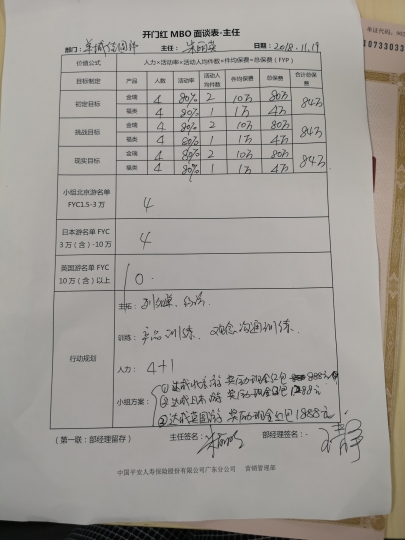 开门红 MBO 面谈表-主任
部门: 主任: 日期: 2018.11.19
价值公式 人力×活动率×活动人均件数×件均保费=总保费(FYP)
目标制定 产品 人数 活动率 活动人均件数 件均保费 总保费 合计总保费
初定目标 金瑞 4 80% 2 10万 80万 84万
福类 4 80% 1 1万 4万
挑战目标 金瑞 4 80% 2 10万 80万 84万
福类 4 80% 1 1万 4万
现实目标 金瑞 4 80% 2 10万 80万 84万
福类 4 80% 1 1万 4万
小组北京游名单
FYC1.5-3 万
4
日本游名单 FYC
3 万(含)-10万
4
英国游名单 FYC
10 万(含)以上
0.
行动规划
主拓:
训练: 产品训练、观念沟通训练.
人力: 4+1
小组方案: ①达成北京游 奖励现金红包 888元
②达成日本游 奖励现金红包 1288元
③达成英国游 奖励现金红包 1888元
(第一联:部经理留存) 主任签名: 部经理签名:
中国平安人寿保险股份有限公司广东分公司 营销管理部
10733033